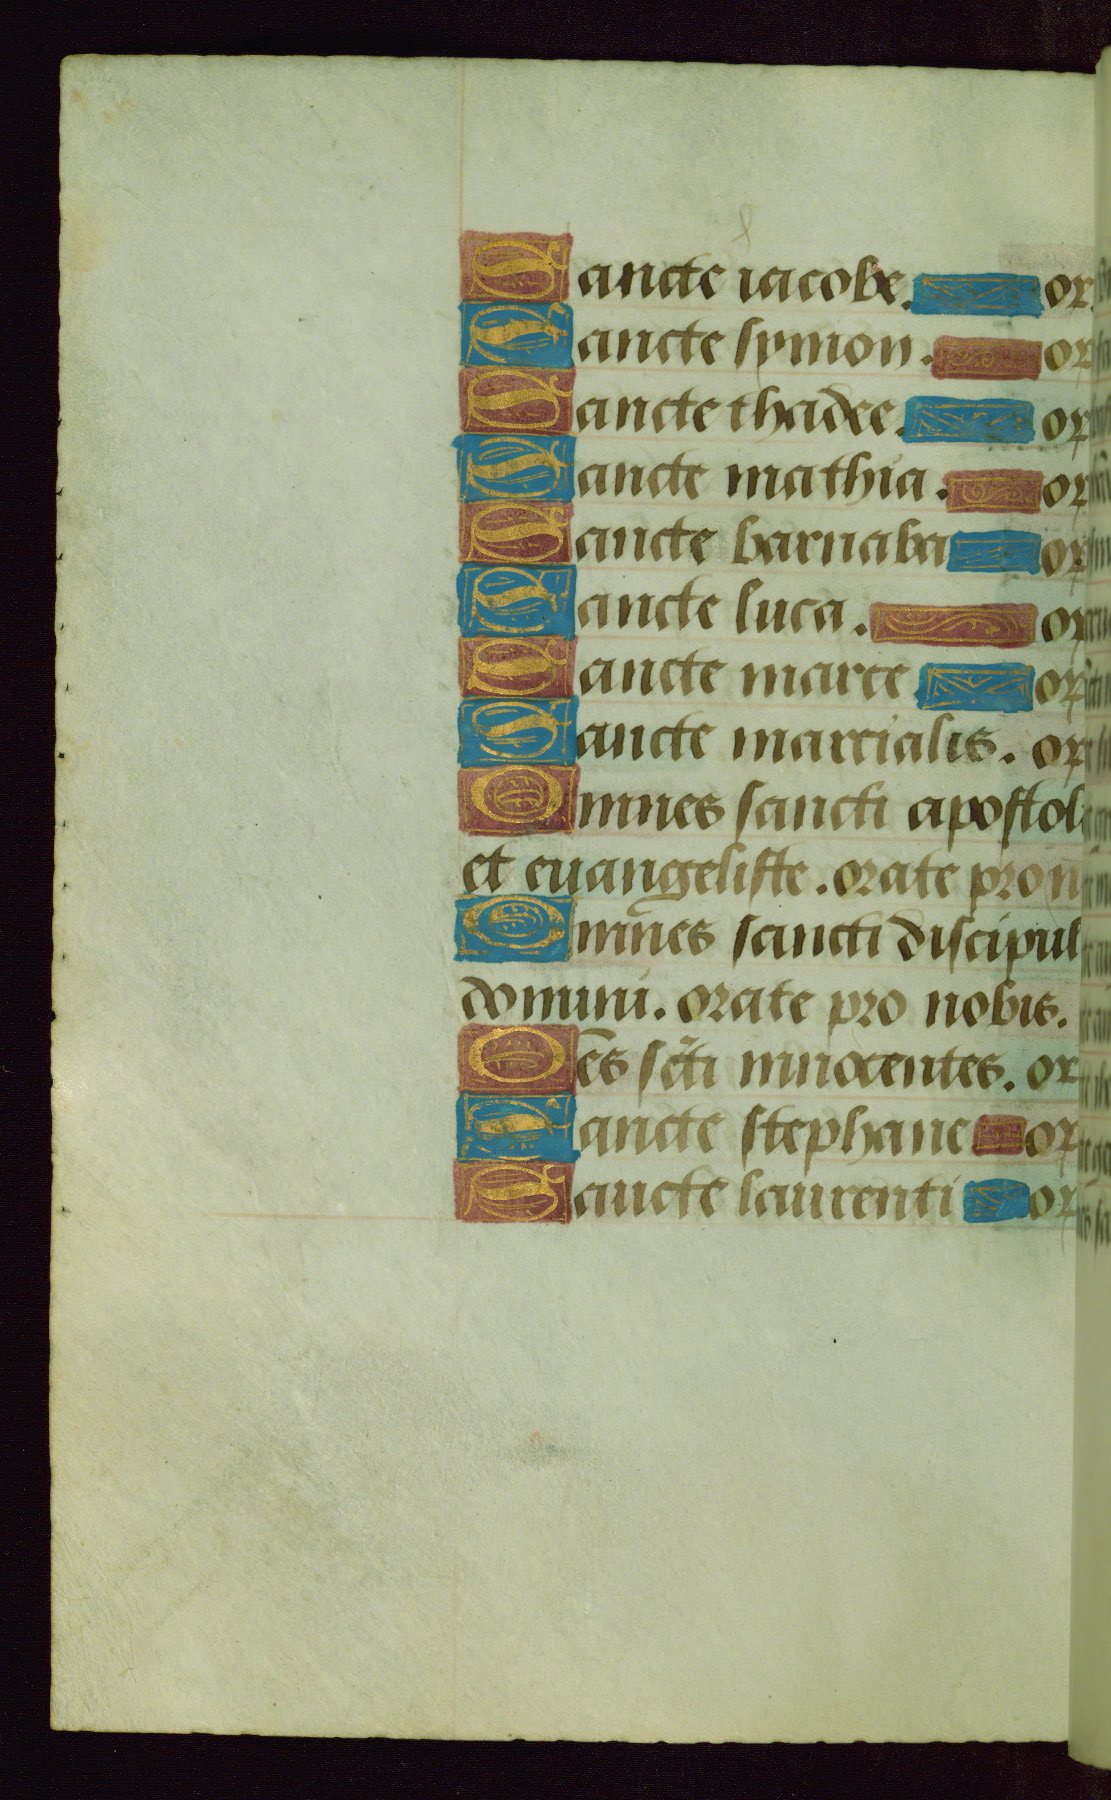 Sancte iacobe. or
Sancte symon. or
Sancte thadee. or
Sancte mathia. or
Sancte barnaba or
Sancte luca. or
Sancte marce or
Sancte marcialis. or
Omnes sancti apostol
et euangeliste. orate pro n
Omnes sancti discipul
domini. orate pro nobis.
Oēs scti innocentes. or
Sancte stephane or
Sancte laurenti or